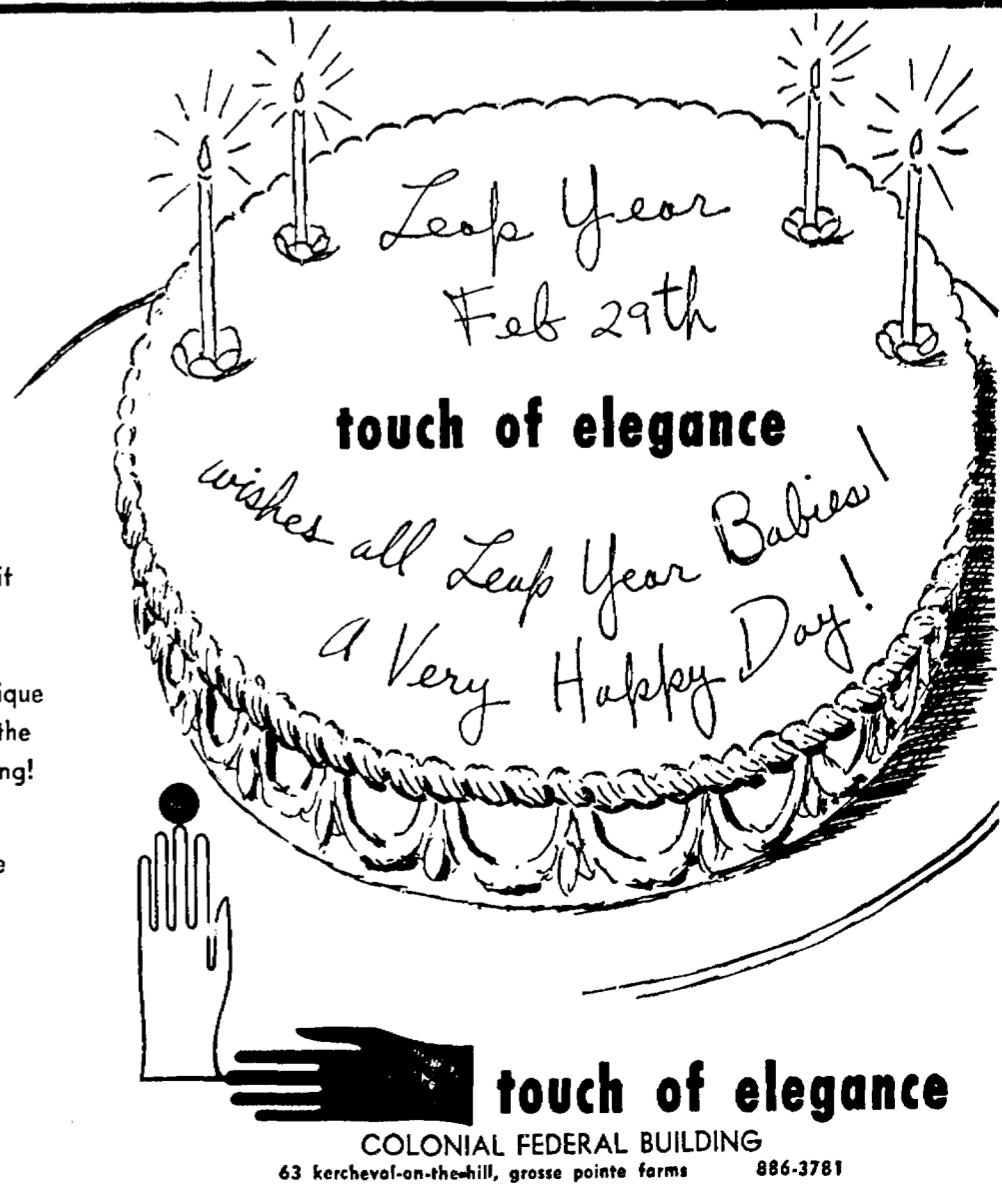 Leap Year
Feb 29th
touch of elegance
wishes all Leap Year Babies!
A Very Happy Day!
it
ique
the
ng!
e
touch of elegance
COLONIAL FEDERAL BUILDING
63 kercheval-on-the-hill, grosse pointe farms 886-3781